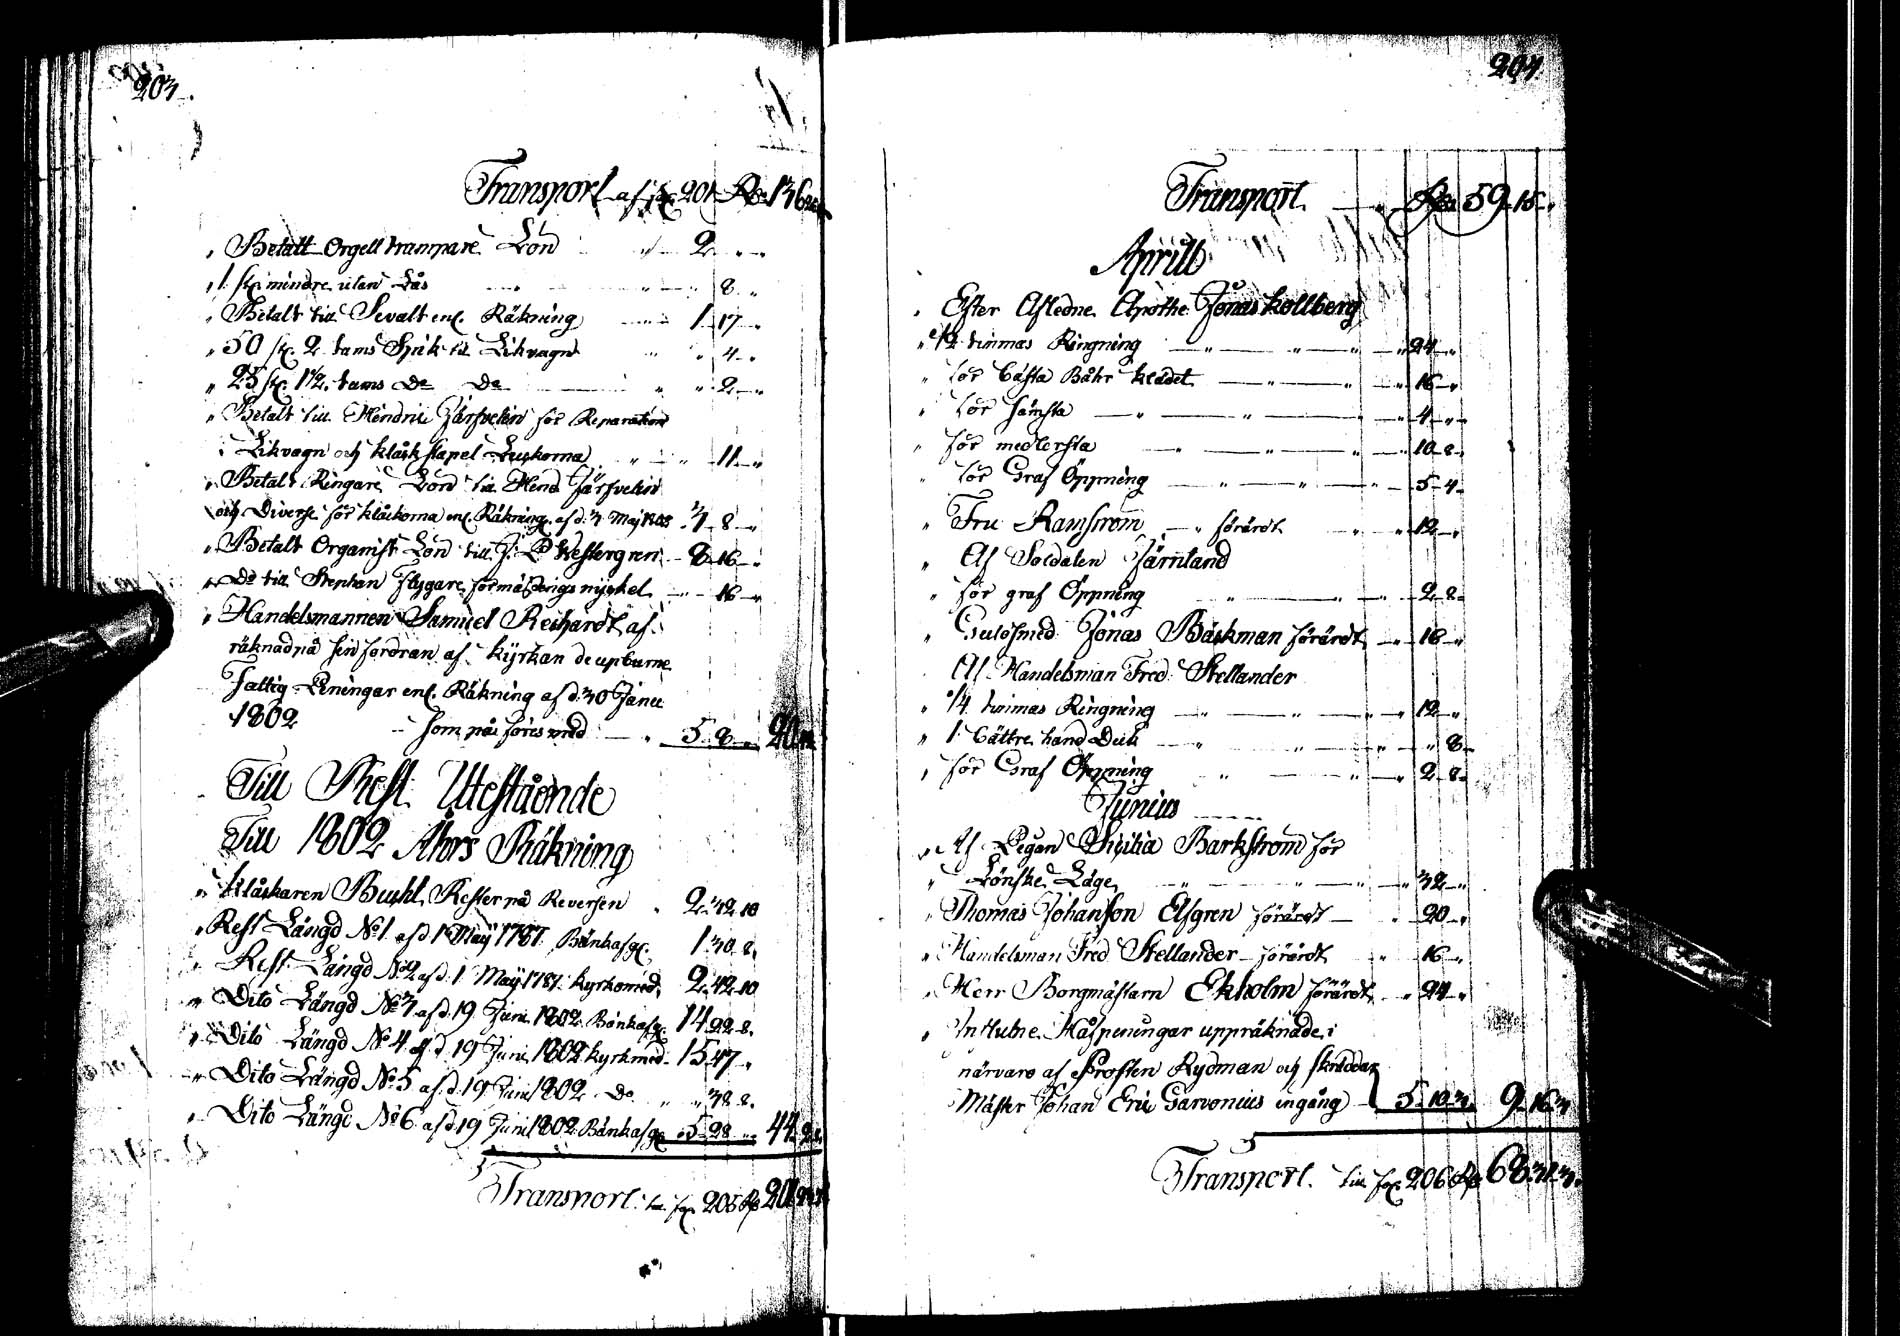 203.
Transport af 201 Rd 136
Betalt Orgell trampare Lön 2
1 st. mindre utan Lås 8
Betalt till Sevalt enl. Räkning 1 17
50 st. 2 tums Spik til Likvagn 4
25 st. 1½ tums Do Do 2
Betalt till Hendric Järfvelin för Reparation
i Likvagn och klåckstapel Luckorna 11
Betalt Ringare Lön til Hend Järfvelin
och Diverse för klåckorna enl. Räkning af d. 3 Maj 8
Betalt Organist Lön till J: Westergren 8 16
Do til Stephan Flygare för mässings nyckel 16
Handelsmannen Samuel Reihardt af
räknad på sin fordran af kyrkan de upburne
Fattig Peningar enl. Räkning af d. 30 Janu
1802 som påföres med 5 8 20
Till Rest Utestående
Till 1802 Åhrs Räkning
Klåckaren Buhl, Rester på Reversen 2 32 10
Rest Längd No 1 af d. 1 Maij 1787 Bänkafg. 1 30 8
Rest Längd No 2 af d. 1 Maij 1787 kyrkomed. 2 42 10
Dito Längd No 3 af d. 19 Juni 1802 Bänkafg. 14 22 8
Dito Längd No 4 af d. 19 Juni 1802 kyrkmed. 15 47
Dito Längd No 5 af d. 19 Juni 1802 Do 38 8
Dito Längd No 6 af d. 19 Juni 1802 Bänkafg. 5 28 44
Transport till 205 Rd 201
204
Transport Rd 59 15
Aprill
Efter Afledne Apothe. Jonas Kollberg
1/2 timas Ringning 24
för bästa Båhr klädet 16
för sämsta 4
för medlersta 10 8
för Graf Öppning 5 4
Fru Ramström förärdt 12
Af Soldaten Järnland
för graf Öppning 2 8
Guldsmed Jonas Bäckman förärdt 16
Af Handelsman Fred Stellander
1/4 timas Ringning 12
1 bättre hand Duk 8
för Graf Öppning 2 8
Junius
Af Pigan Sicilia Barkstrom för
Lönske Läge 32
Thomas Johansson Elfgren förärdt 20
Handelsman Fred Stellander förärdt 16
Herr Borgmästarn Ekholm förärdt 24
Influtne Håfpeningar uppräknade i
närvaro af Prosten Rydman och skräddar
Mäster Johan Eric Garvonius ingång 5 10 3 9 16 3
Transport till 206 Rd 68 31 3